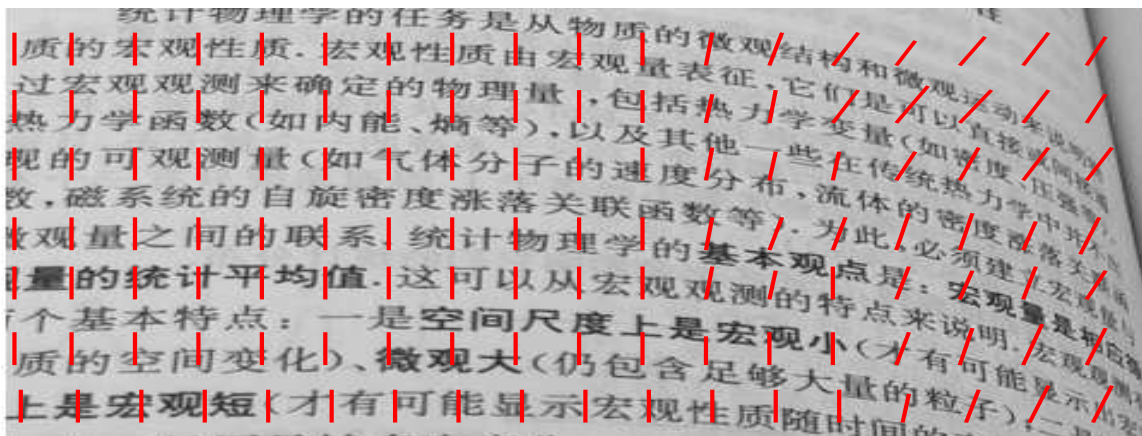 统计物理学的任务是从物质的微观结构和微观运动来说明
质的宏观性质.宏观性质由宏观量表征,它们是可以直接或间接
过宏观观测来确定的物理量,包括热力学变量(如密度、压强等
热力学函数(如内能、熵等),以及其他一些在传统热力学中并不
现的可观测量(如气体分子的速度分布,流体的密度涨落关联
数,磁系统的自旋密度涨落关联函数等).为此,必须建立宏观量
微观量之间的联系.统计物理学的基本观点是:宏观量是相应微
观量的统计平均值.这可以从宏观观测的特点来说明.宏观观测
个基本特点:一是空间尺度上是宏观小(才有可能显示出宏
质的空间变化)、微观大(仍包含足够大量的粒子);二是
上是宏观短(才有可能显示宏观性质随时间的